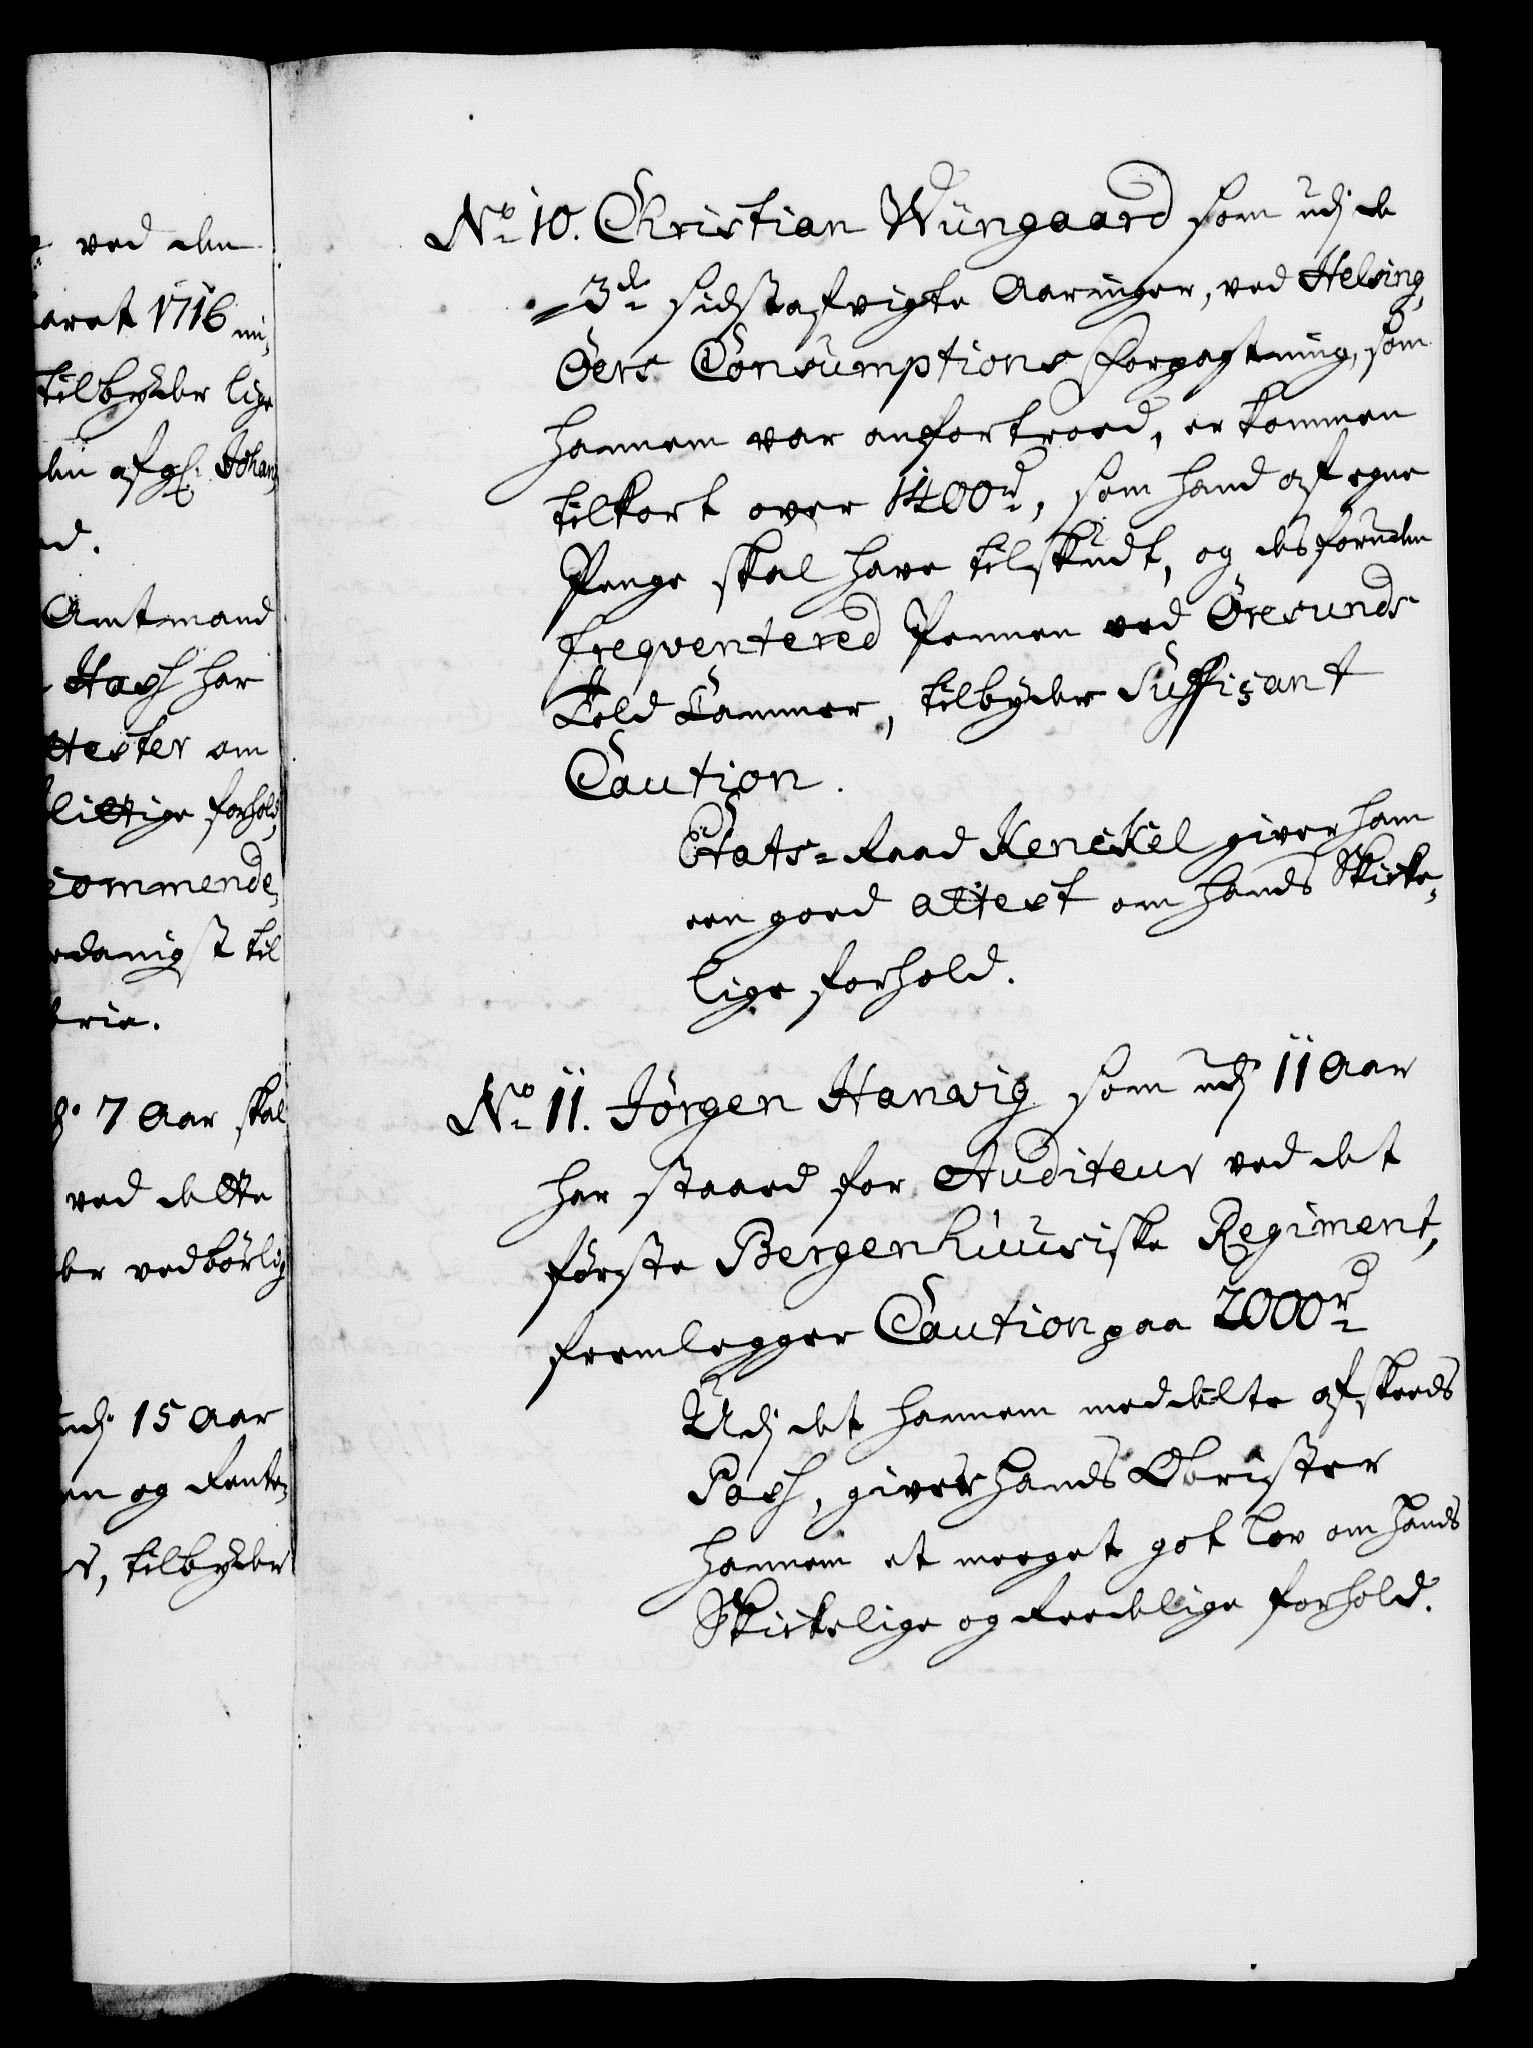 ved den
aret 1716
tilbyder lige
den afg: Johan
d.
Amtmand
Hass har
ttester om
littige forhold,
commende,
danigst til
rie.
7 Aar skal
ved dette
der vedbørlig
udj 15 Aar
en og Rente,
s, tilbyder
No 10. Christian Wüngaard som udj de
3de sidstafvigte Aaringer, ved Helsing,
Öers Consumptions Forpagtning, som
hannem var anfortroed, er kommen
tilkort over 1400 rd, som hand af egne
Penge skal have tilskudt, og desforuden
freqventered Pennen ved Öresunds
Told Cammer, tilbyder Suffisant
Caution.
Etats-Raad Kenckel giver ham
een goed Attest om hands Skicke,
lige forhold.
No 11. Jörgen Hanvig som udj 11 Aar
har staaed for Auditeur ved det
første Bergenhuusiske Regiment,
fremlegger Caution paa 2000 rd
Udj det hannem meddeelte afskeeds
Pass, giver hands Obrister
hannem et meeget got lov om hands
Skickelige og Reedelige forhold.